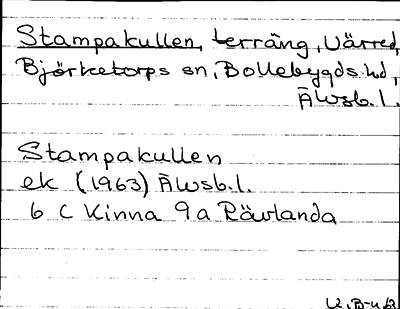 Stampakullen, terräng, Värred,
Björketorps sn, Bollebygds hd,
Älvsb. l.
Stampakullen
ek (1963) Älvsb. l.
6 C Kinna 9a Rävlanda